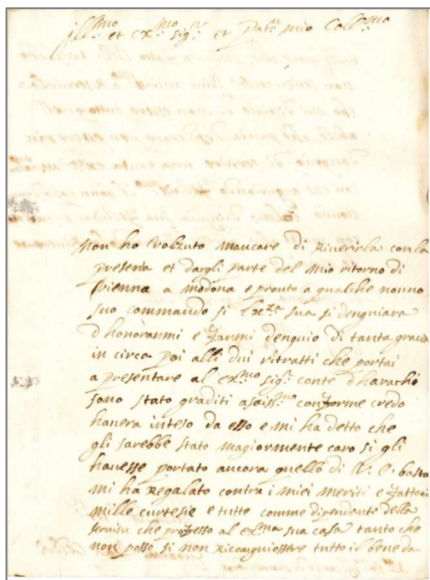 Ill.mo et ex.mo sig.re et Pat.n mio Coll.mo
Non ho volzuto mancare di Riverirla con la
presenta et dargli parte del mio ritorno di
Vienna a modona e pronto a qualche nouuo
suo commando si Ex.za sua si denguiara
d honorarmi e farmi denguio di tanta gracia
in circa poi alli dui ritratti che portai
a presentare al ex.mo sig.r conte d harach
sono stato graditi asaiss.mo conforme credo
hauera inteso da esso e mi ha detto che
gli sarebbe stato magiormente caro si gli
hauesse portato ancora quello di V. E. basta
mi ha Regalato contra i miei meriti e fattomi
mille curtesie e tutte comme dipendente della
seruitu che professo al ex.ma sua casa tanto che
non posso si non Riconguiossere tutto il bene da